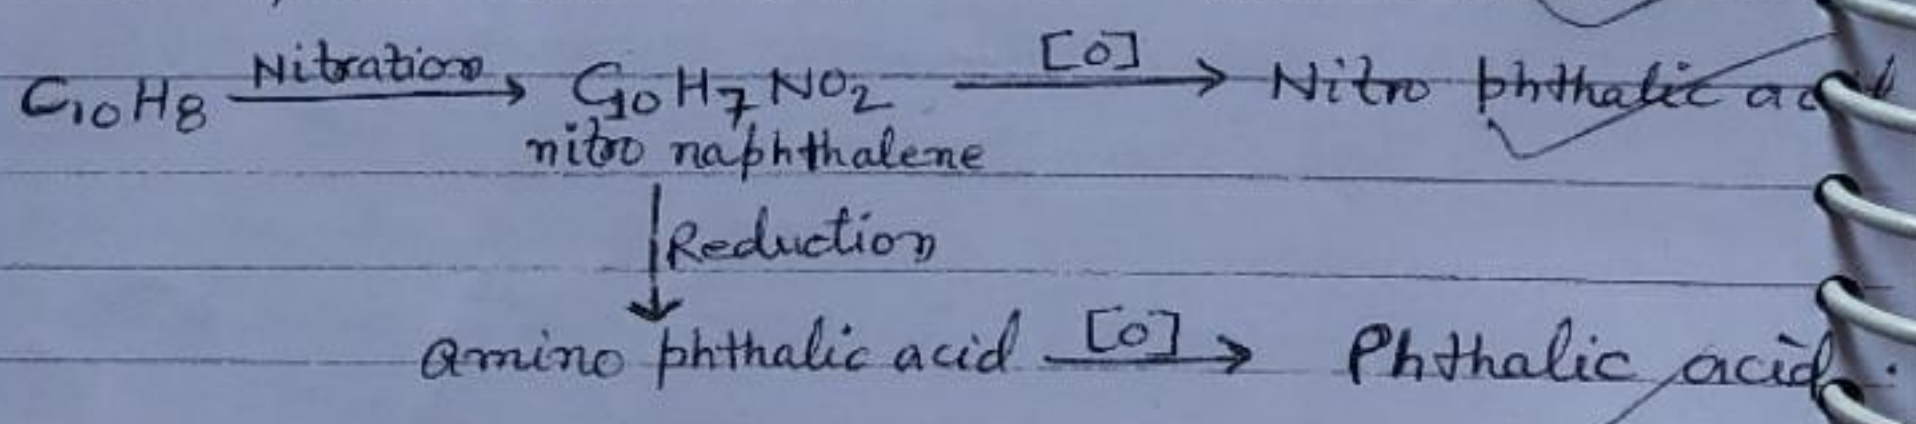 C10H8 Nitration → C10H7NO2 [O] → Nitro phthalic acid
nitro naphthalene
↓ Reduction
amino phthalic acid [O] → Phthalic acid.